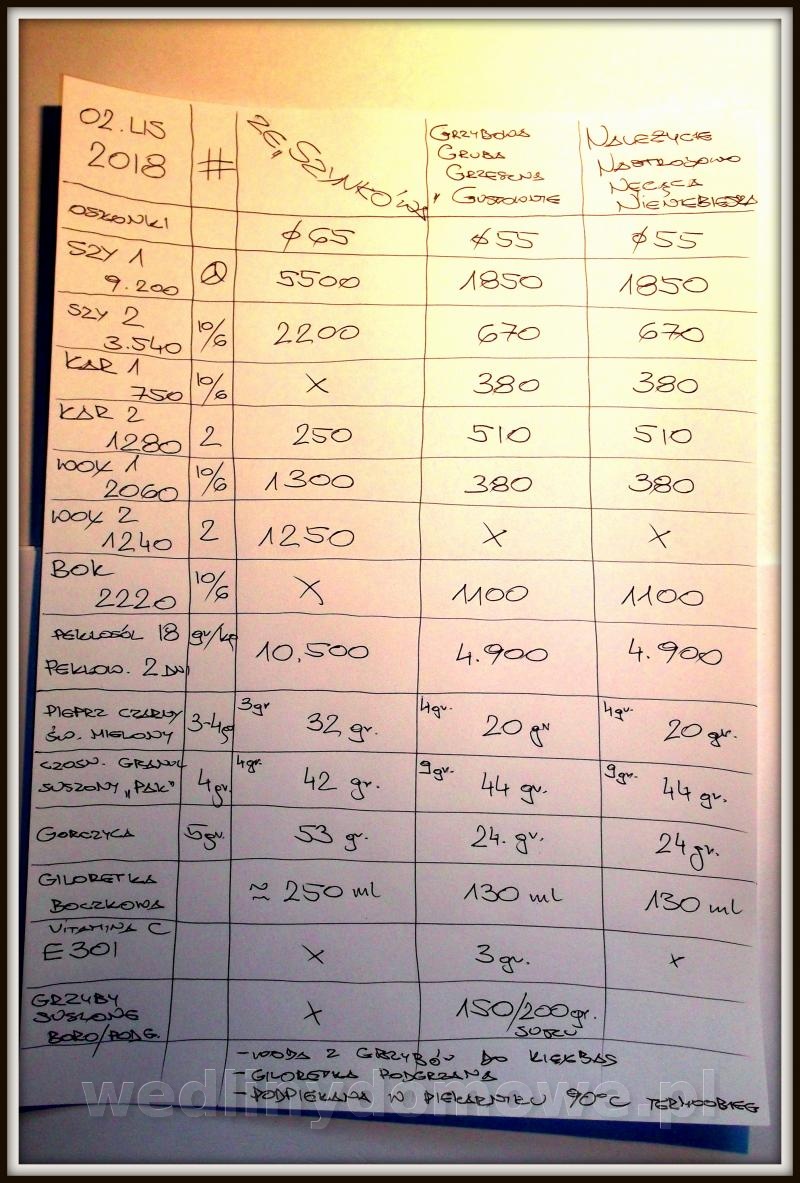 02.LIS
2018
#
ZE „SZYNKÓWA"
GRZYBOWA
GRUBA
GRZESZNA
GUSTOWNIE
NALEŻYCIE
NASTROJOWO
NĘCĄCA
NIENIEBIESKA
OSŁONKI ϕ65 ϕ55 ϕ55
SZY 1
9.200 5500 1850 1850
SZY 2
3.540 10/6 2200 670 670
KAR 1
750 10/6 X 380 380
KAR 2
1280 2 250 510 510
WOŁ 1
2060 10/6 1300 380 380
WOŁ 2
1240 2 1250 X X
BOK
2220 10/6 X 1100 1100
PEKLOSÓL 18 gr/kg
10,500 4.900 4.900
PEKLOW. 2 DNI
PIEPRZ CZARNY
ŚW. MIELONY 3-4g 3gr 32 gr. 4gr. 20 gr 4gr. 20 gr.
CZOSN. GRANUL
SUSZONY „PAK" 4gr. 4gr. 42 gr. 9gr. 44 gr. 9gr. 44 gr.
GORCZYCA 5gr. 53 gr. 24. gr. 24 gr.
GILORETKA
BOCZKOWA ≈ 250 ml 130 ml 130 ml
VITAMINA C
E 301 X 3 gr. X
GRZYBY
SUSZONE
BORO/PODG. X 150/200gr.
SUSZU
- WODA Z GRZYBÓW DO KIEŁBAS
- GILORETKA PODGRZANA
- PODPIEKANA W PIEKARNIKU 90°C TERMOOBIEG
wedlinydomowe.pl